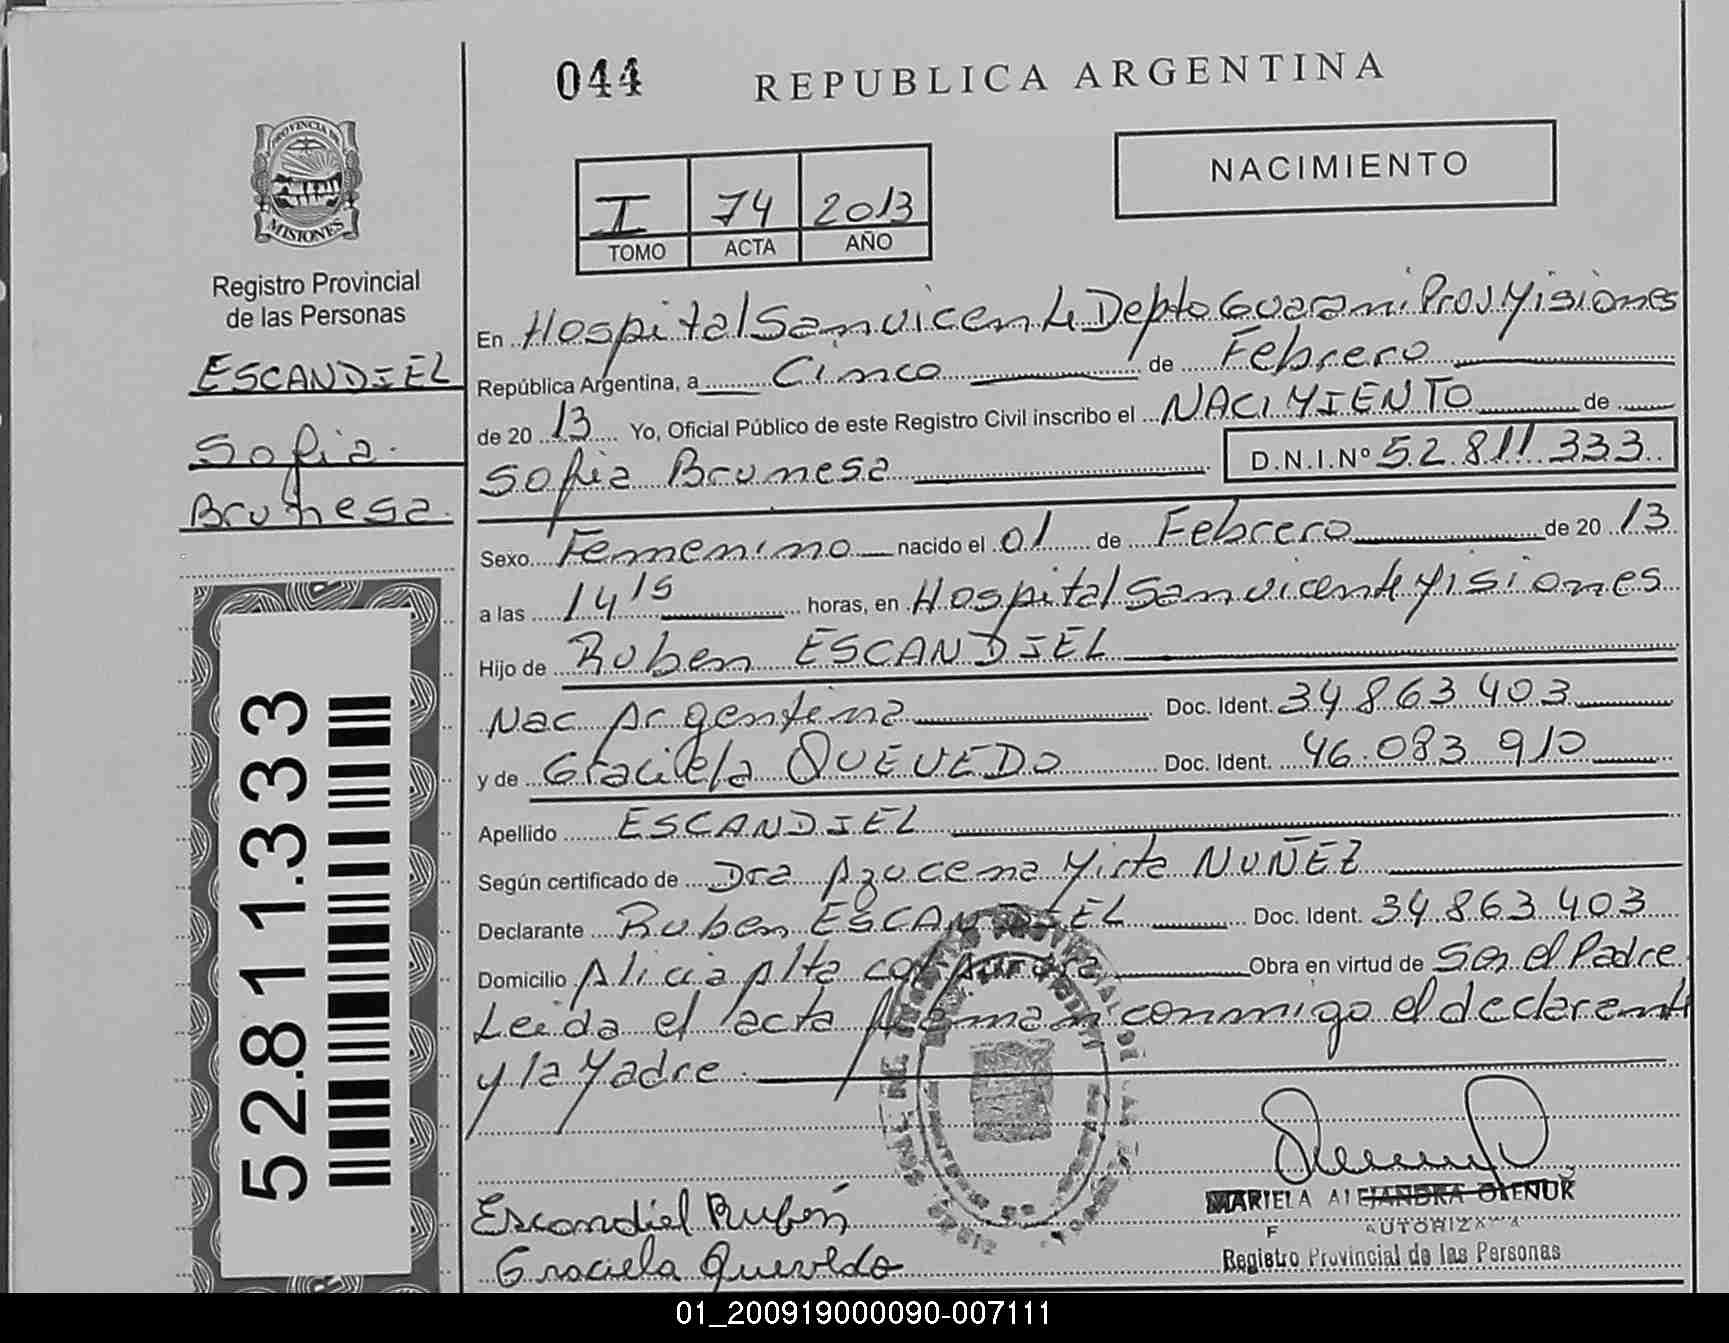 044
REPUBLICA ARGENTINA
NACIMIENTO
I 74 2013
TOMO ACTA AÑO
PROVINCIA DE
MISIONES
Registro Provincial
de las Personas
ESCANDIEL
Sofia
Brunesa
52.811.333
En Hospital San vicente Depto Guarani Prov Misiones
República Argentina, a Cinco de Febrero
de 2013 Yo, Oficial Público de este Registro Civil inscribo el NACIMIENTO de
Sofia Brunesa D.N.I.Nº 52.811.333
Sexo Femenino nacido el 01 de Febrero de 2013
a las 14 15 horas, en Hospital San vicente Misiones
Hijo de Ruben ESCANDIEL
Nac Argentina Doc. Ident. 34 863 403
y de Graciela QUEVEDO Doc. Ident. 46.083 910
Apellido ESCANDIEL
Según certificado de Dra Azucena Mirta NUÑEZ
Declarante Ruben ESCANDIEL Doc. Ident. 34 863 403
Domicilio Alicia Alta Obra en virtud de Ser el Padre
Leida el acta firman conmigo el declarente
y la Madre
Escandiel Rubén
Graciela Quevedo
MARIELA ALEJANDRA OLENUK
Registro Provincial de las Personas
01_200919000090-007111